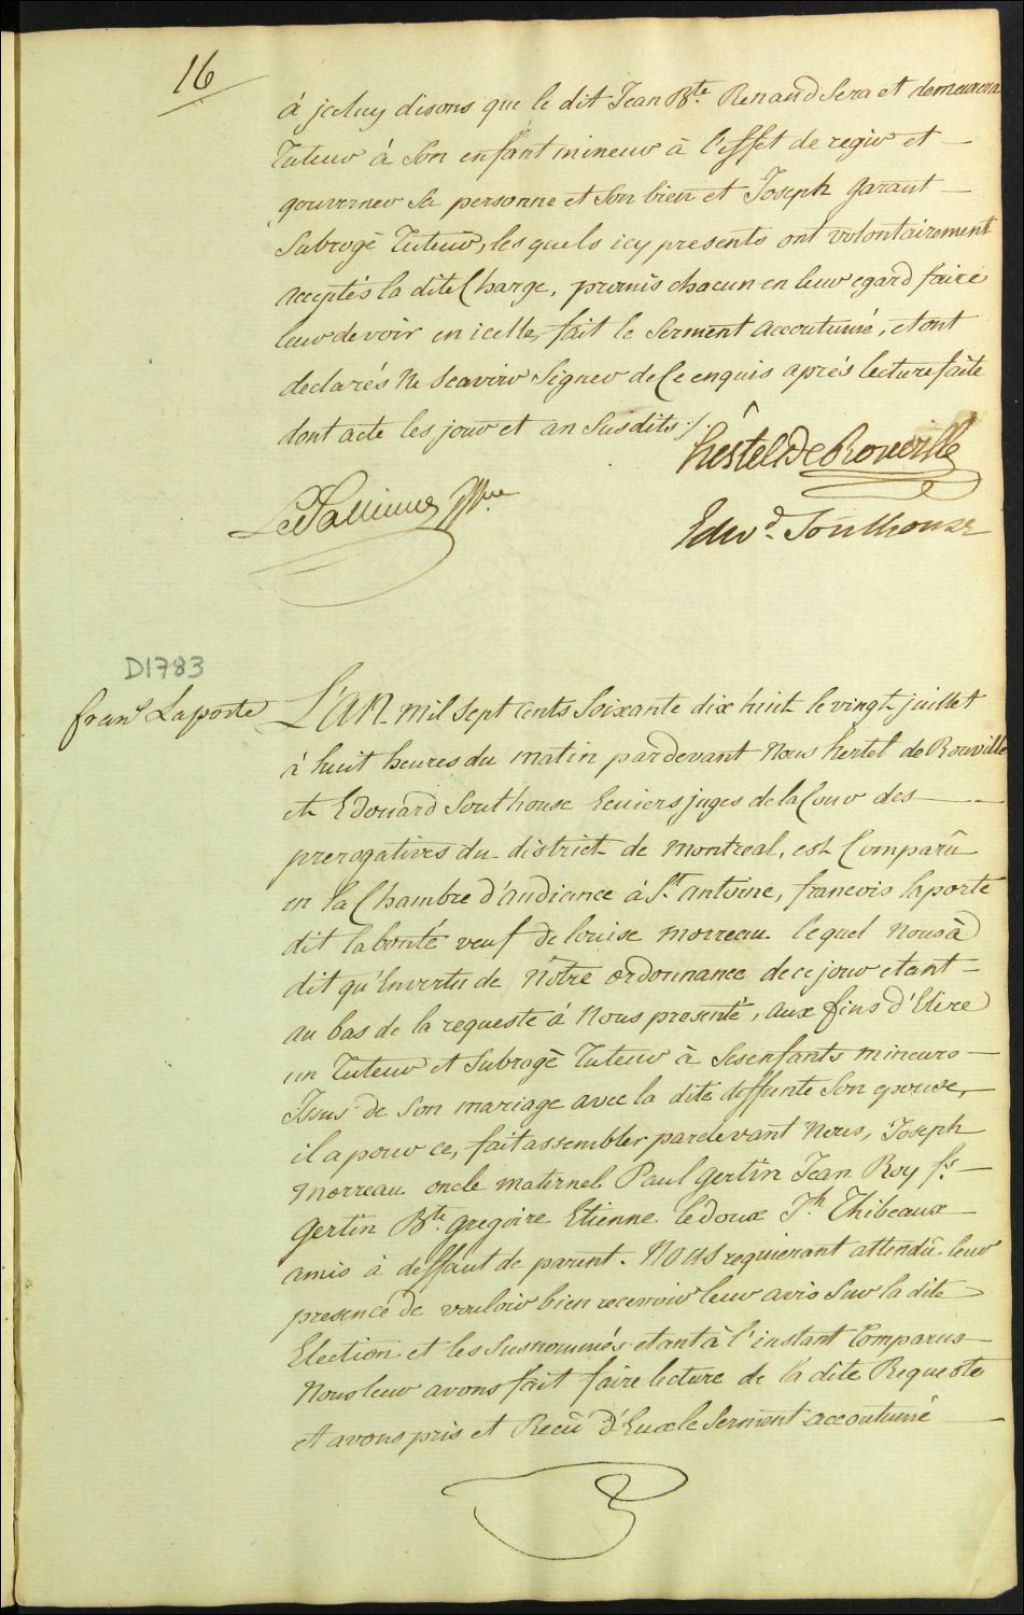 16
à jceluy disons que le dit Jean Bte. Renaud Sera et demeurera
Tuteur à Son enfant mineur à l'effet de regir et
gouverner Sa personne et Son bien et Joseph Garant
Subrogé Tuteur, lesquels icy presents ont volontairement
acceptés la dite Charge, promis chacun en leur egard faire
leur devoir en icelle, fait le Serment accoutumé, et ont
declarés ne Scavoir Signer de Ce enquis aprés lecture faite
dont acte les jour et an Susdits ./.
hertel De Rouville
Edwd. Southouse
D1783
franç Laporte
L'AN mil Sept Cents Soixante dix huit le vingt juillet
à huit heures du matin pardevant Nous hertel de Rouville
et Edouard Southouse Ecuiers juges de la Cour des
prerogatives du district de Montreal, est Comparû
en la Chambre d'audiance à St. antoine, francois laporte
dit labonté veuf de louise morreau lequel Nous à
dit qu'Envertu de Nôtre ordonnance de ce jour etant
au bas de la requeste à Nous presenté, aux fins d'Elire
un Tuteur et Subrogé Tuteur à Ses enfants mineurs
Issus de Son mariage avec la dite deffunte Son epouse,
il a pour ce, fait assembler pardevant Nous, Joseph
Morreau oncle maternel Paul Gertin Jean Roy fs.
Gertin Bte. Gregoire Etienne ledoux Jh. Thibeaux
amis à deffaut de parent. Nous requierant attendû leur
presence de vouloir bien recevoir leur avis Sur la dite
Election et les Susnommés etant à l'instant Comparus
Nous leur avons fait faire lecture de la dite Requeste
et avons pris et Recû d'Eux le Serment accoutumé